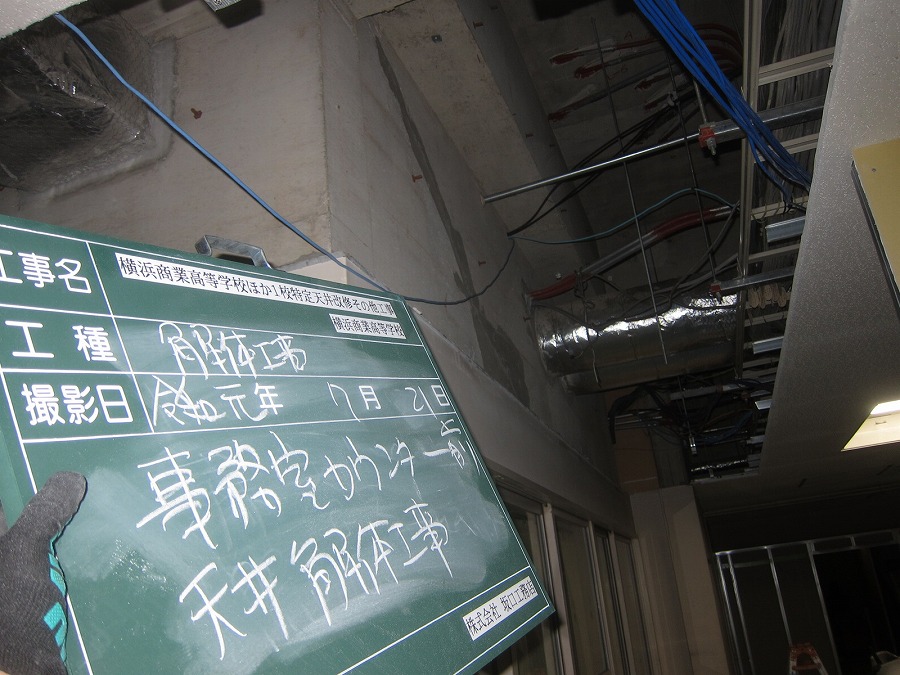 工事名 横浜商業高等学校ほか1校特定天井改修その他工事
横浜商業高等学校
工種 解体工事
撮影日 令和元年 7月 21日
事務室カウンター前
天井解体工事
株式会社 坂口工務店